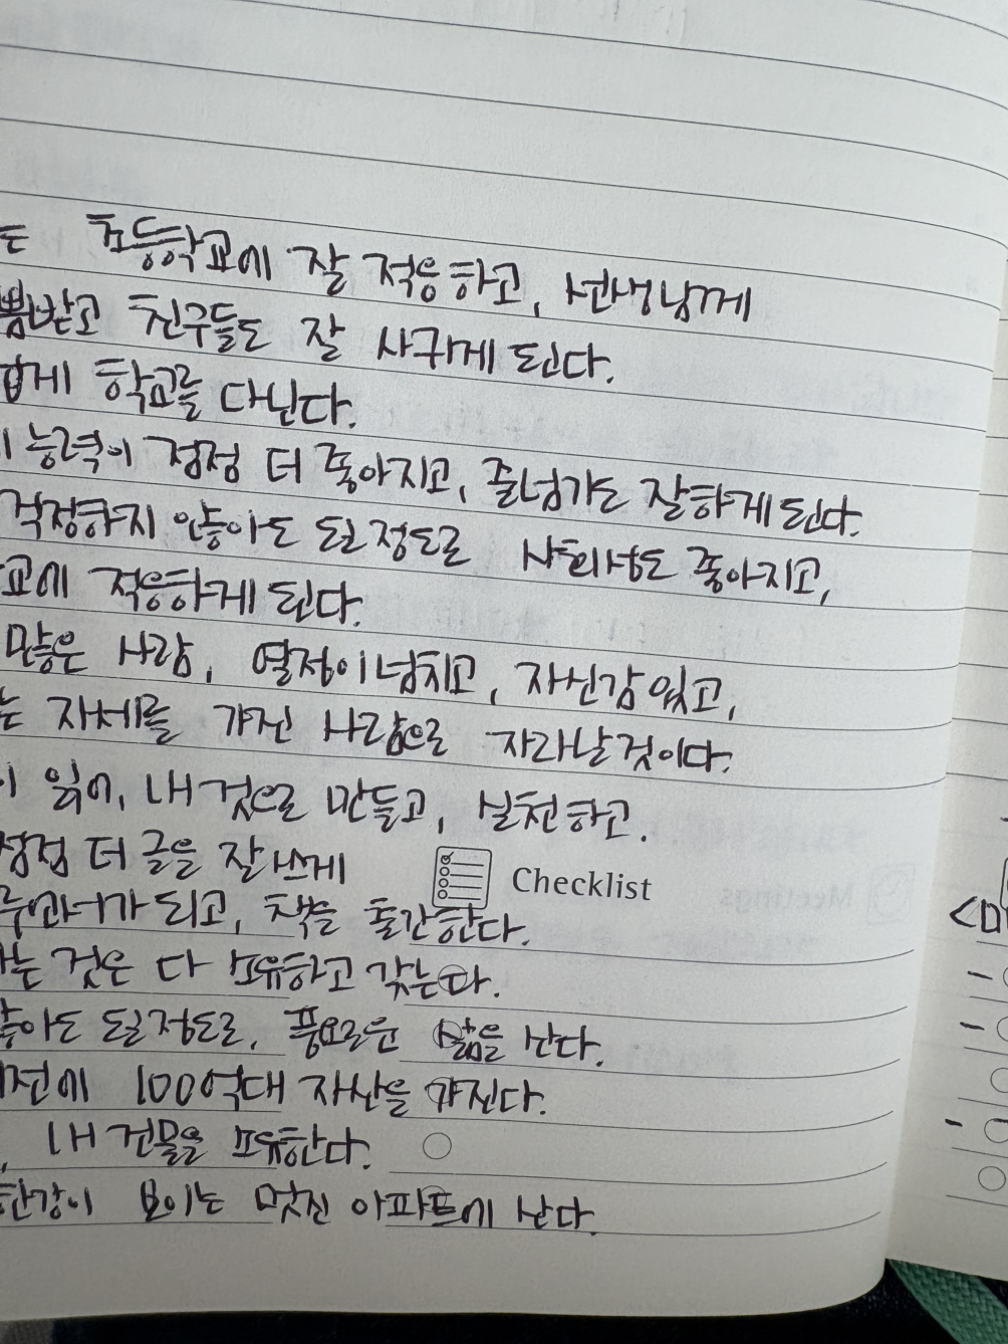 초등학교에 잘 적응하고, 선생님께
친구들도 잘 사귀게 된다.
학교를 다닌다.
능력이 점점 더 좋아지고, 줄넘기도 잘하게 된다.
걱정하지 않아도 될 정도로 사회성도 좋아지고,
적응하게 된다.
많은 사람, 열정이 넘치고, 자신감 있고,
자세를 가진 사람으로 자라날 것이다.
읽어, 내 것으로 만들고, 실천하고.
점점 더 글을 잘 쓰게
Checklist
되고, 책을 출간한다.
것은 다 소유하고 갖는다.
될 정도로, 풍요로운 삶을 산다.
100억대 자산을 가진다.
내 건물을 소유한다.
한강이 보이는 멋진 아파트에 산다.